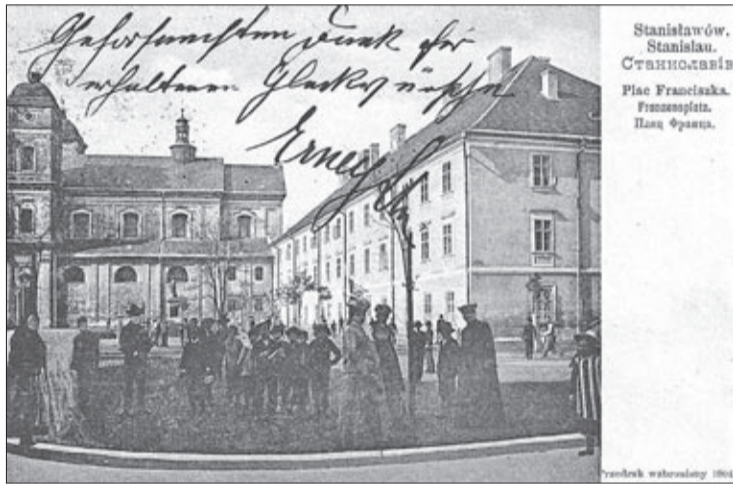 Gehorsamsten Dank für
erhaltenen Glückwünsche
Stanisławów.
Stanislau.
Станиславів
Plac Franciszka.
Franzensplatz.
Плац Франца.
Przedruk wzbroniony